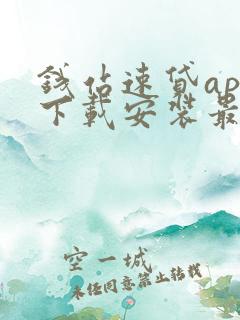 钱站速贷ap
下载安装最
空一城
未经同意禁止转载